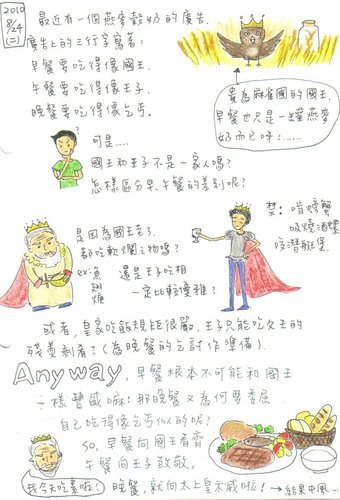 2010
8/24
(二)
最近有一個燕麥穀奶的廣告.
廣告上的三行字寫著:
早餐要吃得像國王.
午餐要吃得像王子.
晚餐要吃得像乞丐.
貴為麻雀國的國王,
早餐也只是一罐燕麥
奶而已呀!......
可是....
國王和王子不是一家人嗎?
怎樣區分早.午餐的差別呢?
是因為國王老了.
都吃軟爛之物嗎?
ex:魚
翅
粥
還是王子吃相
一定比較優雅?
禁: 啃螃蟹
吸燒酒螺
咬潛艇堡
或者,皇家吃飯規矩很嚴,王子只能吃父王的
殘羹剩肴?(為晚餐的乞討作準備).
Anyway, 早餐根本不可能和國王
一樣豐盛嘛!那晚餐又為何要委屈
自己吃得像乞丐似的呢?
So, 早餐向國王看齊
午餐向王子致敬,
晚餐,就向太上皇示威啦! → 結果中風....
我今天吃素啦!